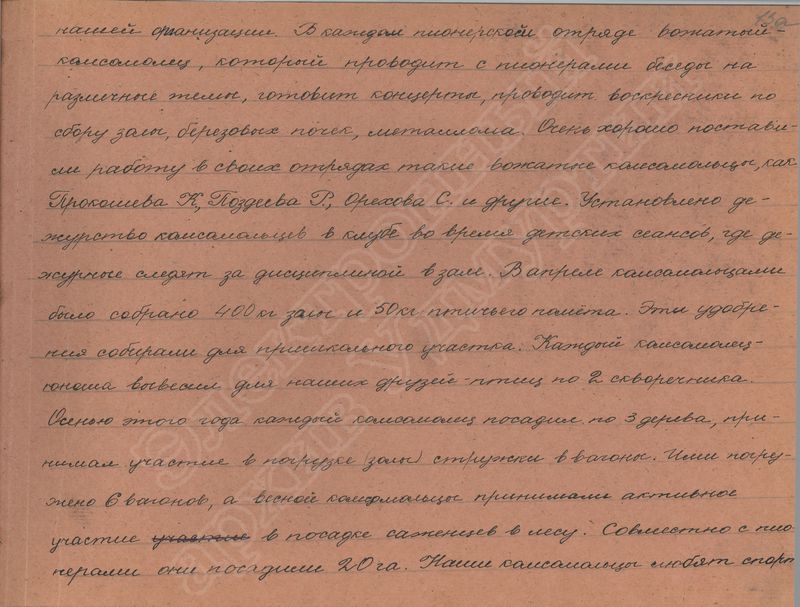 13а
нашей организации. В каждом пионерской отряде вожатый-
комсомолец, который проводит с пионерами беседы на
различные темы, готовит концерты, проводит воскресники по
сбору золы, березовых почек, металлома. Очень хорошо постави-
ли работу в своих отрядах такие вожатые комсомольцы, как
Прокошева К., Поздеева Р., Орехова С. и другие. Установлено де-
журство комсомольцев в клубе во время детских сеансов, где де-
журные следят за дисциплиной в зале. В апреле комсомольцами
было собрано 400 кг золы и 50 кг птичьего помёта. Эти удобре-
ния собирали для пришкольного участка. Каждый комсомолец-
юноша вывесил для наших друзей-птиц по 2 скворечника.
Осенью этого года каждый комсомолец посадил по 3 дерева, при-
нимал участие в погрузке (золы) стружки в вагоны. Ими погру-
жено 6 вагонов, а весной комсомольцы принимали активное
участие участие в посадке саженцев в лесу. Совместно с пио-
нерами они посадили 20 га. Наши комсомольцы любят спорт